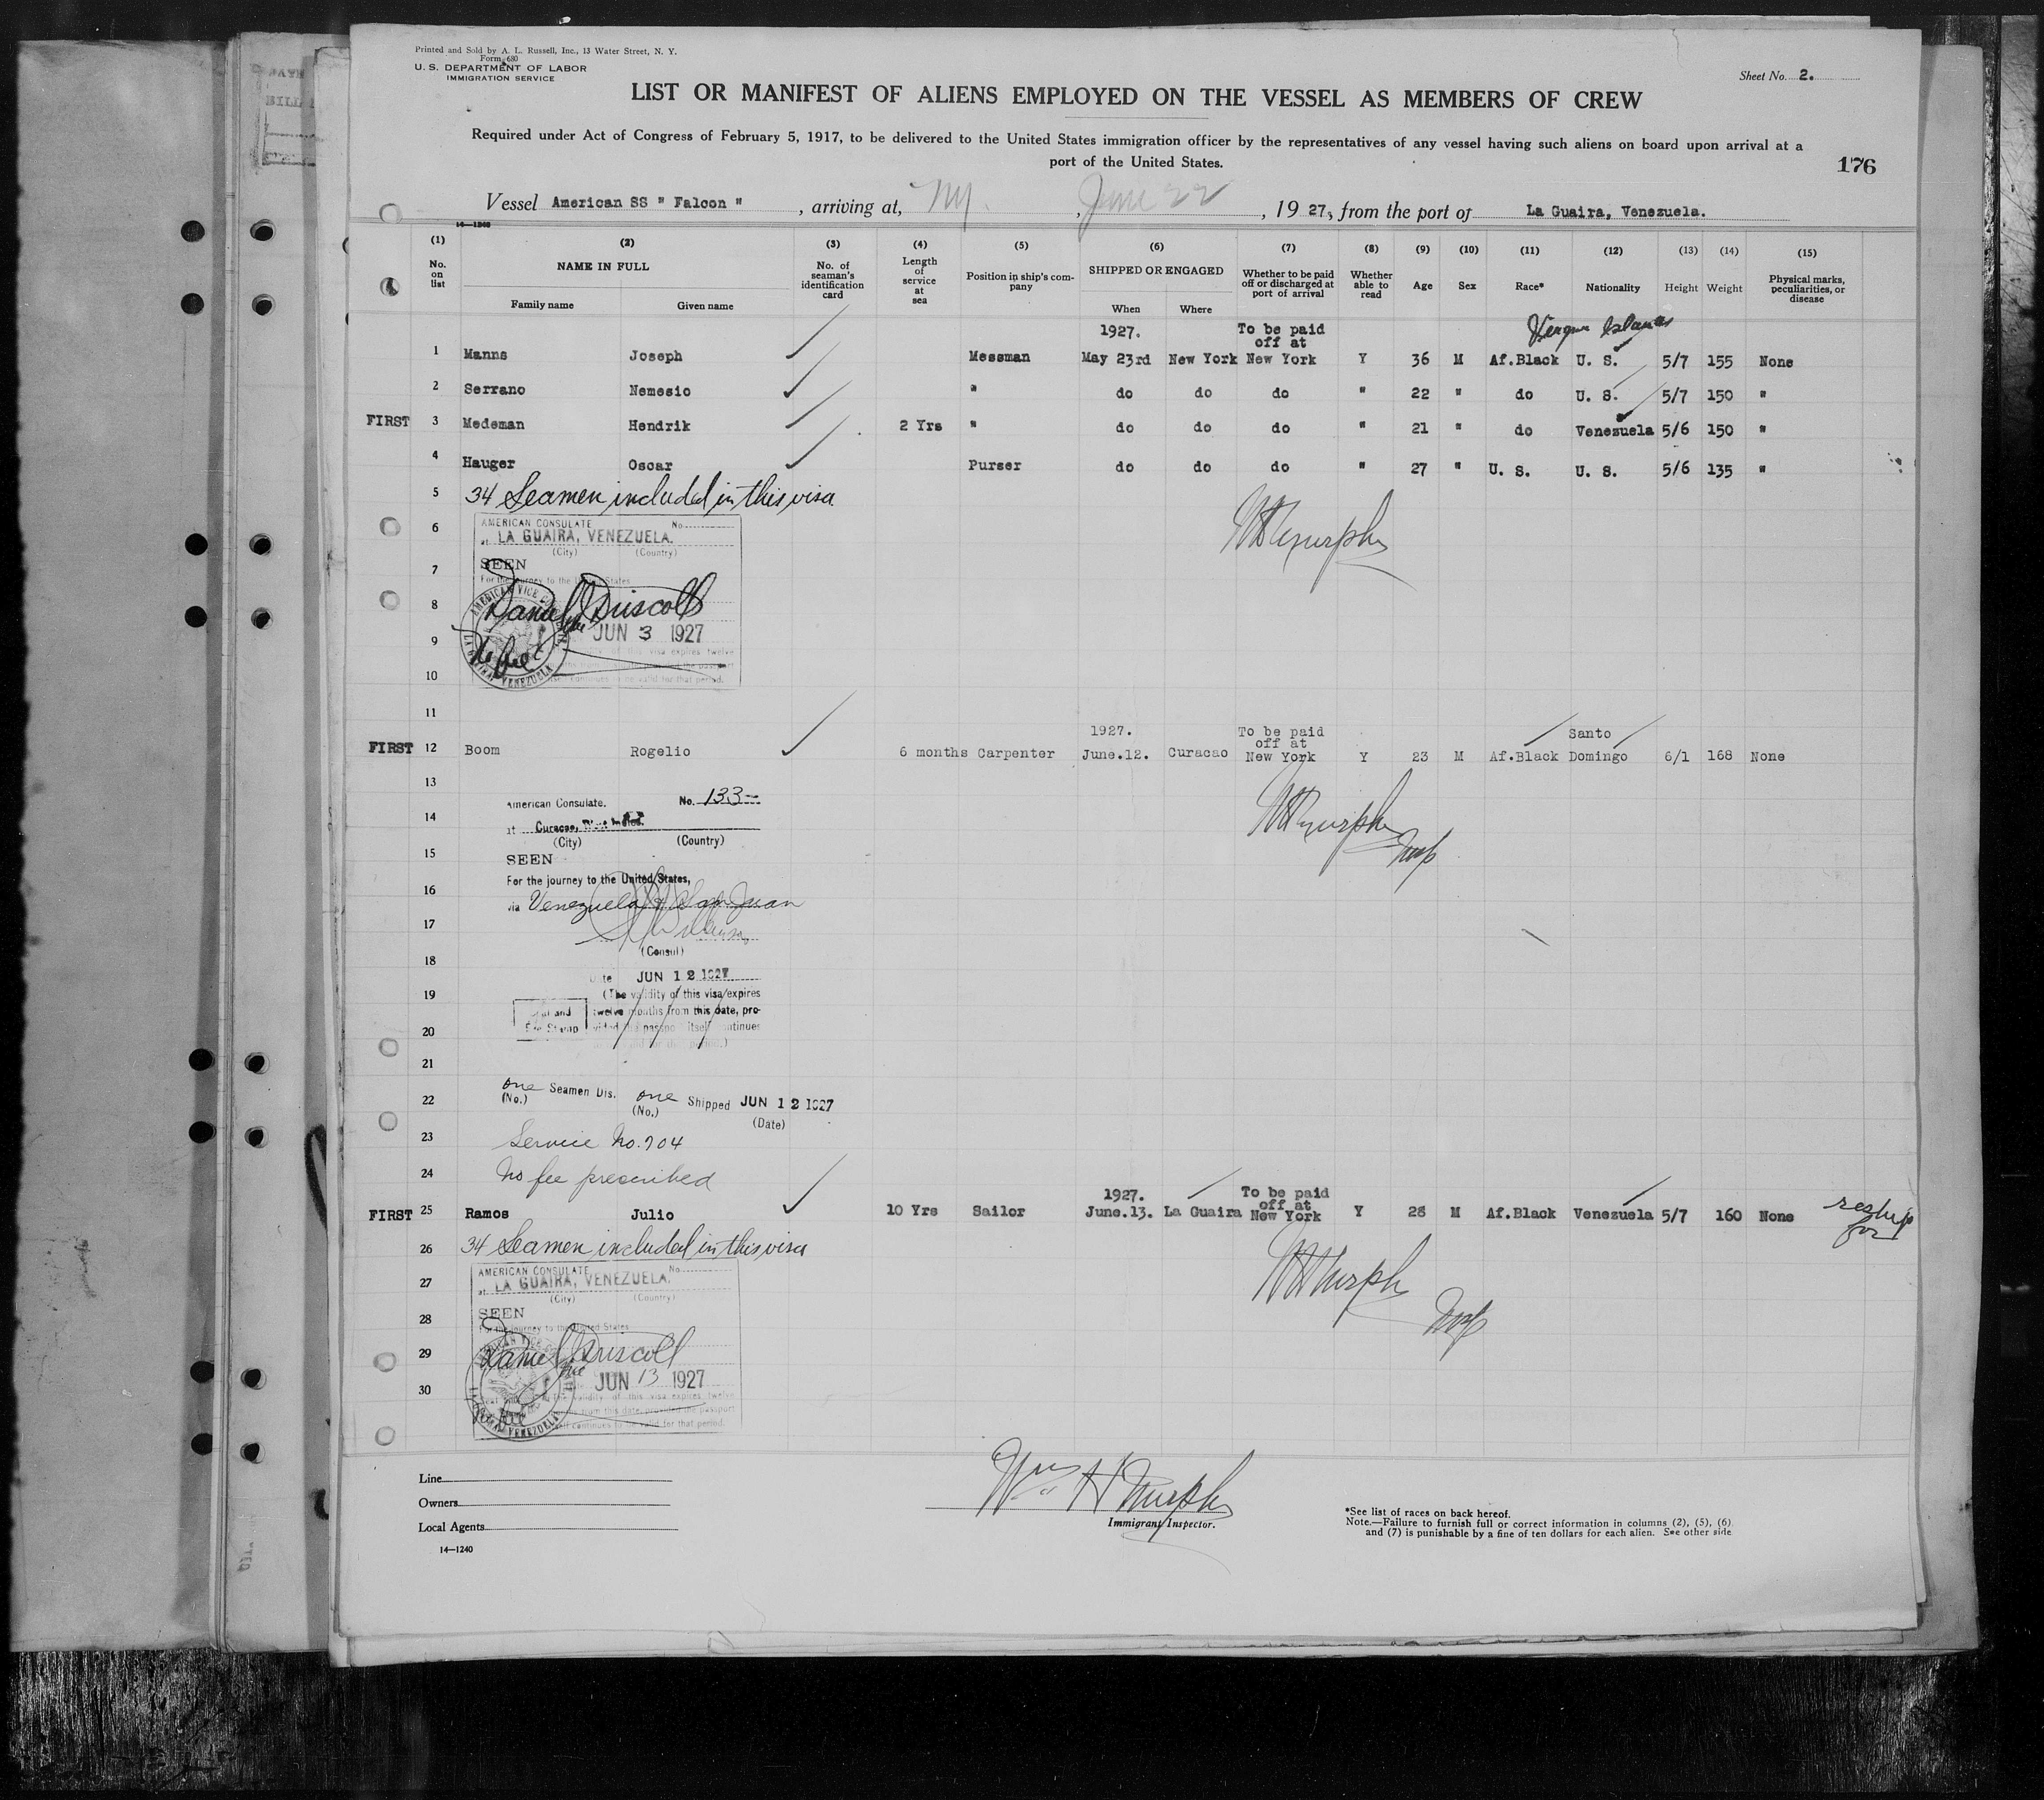 Printed and Sold by A. L. Russell, Inc., 13 Water Street, N. Y.
Form 680
U. S. DEPARTMENT OF LABOR
IMMIGRATION SERVICE
Sheet No. 2.
LIST OR MANIFEST OF ALIENS EMPLOYED ON THE VESSEL AS MEMBERS OF CREW
Required under Act of Congress of February 5, 1917, to be delivered to the United States immigration officer by the representatives of any vessel having such aliens on board upon arrival at a
port of the United States.
176
Vessel American SS " Falcon ", arriving at, NY. , June 22, 1927, from the port of La Guaira, Venezuela.
14—1240
(1) (2) (3) (4) (5) (6) (7) (8) (9) (10) (11) (12) (13) (14) (15)
No. on list NAME IN FULL Family name Given name No. of seaman's identification card Length of service at sea Position in ship's company SHIPPED OR ENGAGED When Where Whether to be paid off or discharged at port of arrival Whether able to read Age Sex Race* Nationality Height Weight Physical marks, peculiarities, or disease
1927. To be paid off at Virgin Islands
1 Manns Joseph Messman May 23rd New York New York Y 36 M Af.Black U. S. 5/7 155 None
2 Serrano Nemesio " do do do " 22 " do U. S. 5/7 150 "
FIRST 3 Medeman Hendrik 2 Yrs " do do do " 21 " do Venezuela 5/6 150 "
4 Hauger Oscar Purser do do do " 27 " U. S. U. S. 5/6 135 "
5 34 Seamen included in this visa.
6 AMERICAN CONSULATE No.
at LA GUAIRA, VENEZUELA.
(City) (Country)
7 SEEN
For the journey to the United States
8 Daniel Driscoll
9 JUN 3 1927
No fee
10
11
1927. To be paid off at Santo
FIRST 12 Boom Rogelio 6 months Carpenter June.12. Curacao New York Y 23 M Af.Black Domingo 6/1 168 None
13
American Consulate. No. 133—
14 at Curacao, West Indies.
(City) (Country)
15 SEEN
For the journey to the United States,
16 via Venezuela & San Juan
17
(Consul)
18
Date JUN 12 1927
19 (The validity of this visa expires
twelve months from this date, pro-
20 vided the passport itself continues
21
22 one Seamen Dis. one Shipped JUN 12 1927
(No.) (No.) (Date)
23 Service No. 704
24 No fee prescribed
1927. To be paid off at
FIRST 25 Ramos Julio 10 Yrs Sailor June.13. La Guaira New York Y 28 M Af.Black Venezuela 5/7 160 None reship
26 34 Seamen included in this visa
AMERICAN CONSULATE No.
27 at LA GUAIRA, VENEZUELA.
(City) (Country)
28 SEEN
For the journey to the United States
29 Daniel Driscoll
JUN 13 1927
30
Line
Owners
Local Agents
14—1240
Wm H Murphy
Immigrant Inspector.
*See list of races on back hereof.
Note.—Failure to furnish full or correct information in columns (2), (5), (6)
and (7) is punishable by a fine of ten dollars for each alien. See other side